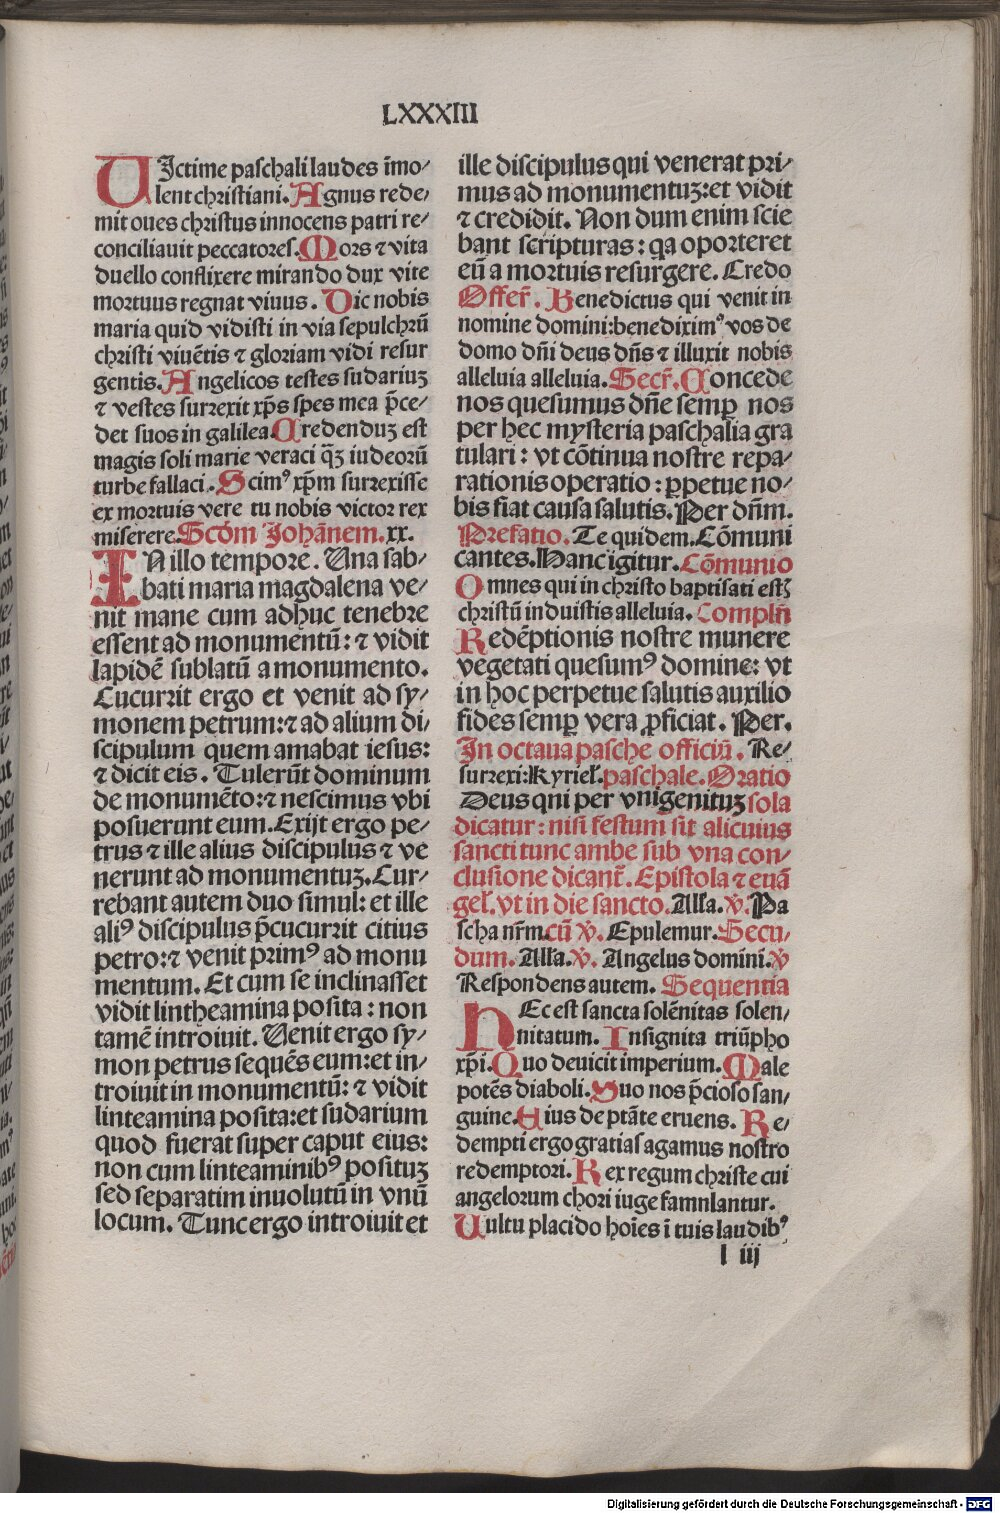 LXXXIII
UJctime paschali laudes īmo/
lent christiani. Agnus rede/
mit oues christus innocens patri re/
conciliauit peccatores. Mors ⁊ vita
duello conflixere mirando dux vite
mortuus regnat viuus. Dic nobis
maria quid vidisti in via sepulchrū
christi viuētis ⁊ gloriam vidi resur
gentis. Angelicos testes sudariuꝫ
⁊ vestes surrexit xp̄s spes mea p̄ce/
det suos in galilea Credenduꝫ est
magis soli marie veraci q̄ꝫ iudeorū
turbe fallaci. Scimꝰ xp̄m surrexisse
ex mortuis vere tu nobis victor rex
miserere. Scd̄m Johānem. xx.
IN illo tempore. Una sab/
bati maria magdalena ve/
nit mane cum adhuc tenebre
essent ad monumentū: ⁊ vidit
lapidē sublatū a monumento.
Cucurrit ergo et venit ad sy/
monem petrum: ⁊ ad alium di/
scipulum quem amabat iesus:
⁊ dicit eis. Tulerūt dominum
de monumēto: ⁊ nescimus vbi
posuerunt eum. Exijt ergo pe/
trus ⁊ ille alius discipulus ⁊ ve
nerunt ad monumentuꝫ. Cur/
rebant autem duo simul: et ille
aliꝰ discipulus p̄cucurrit citius
petro: ⁊ venit primꝰ ad monu
mentum. Et cum se inclinasset
vidit lintheamina posita: non
tamē introiuit. Venit ergo sy/
mon petrus sequēs eum: et in/
troiuit in monumentū: ⁊ vidit
linteamina posita: et sudarium
quod fuerat super caput eius:
non cum linteaminibꝰ posituꝫ
sed separatim inuolutū in vnū
locum. Tunc ergo introiuit et
ille discipulus qui venerat pri/
mus ad monumentuꝫ: et vidit
⁊ credidit. Non dum enim scie
bant scripturas: qꝫ oporteret
eū a mortuis resurgere. Credo
Offer̄. Benedictus qui venit in
nomine domini: benediximꝰ vos de
domo dn̄i deus dn̄s ⁊ illuxit nobis
alleluia alleluia. Secr̄. Concede
nos quesumus dn̄e semꝑ nos
per hec mysteria paschalia gra
tulari: vt cōtinua nostre repa/
rationis operatio: ꝑpetue no/
bis fiat causa salutis. Per dn̄m.
Prefatio. Te quidem. Cōmuni
cantes. Hanc igitur. Cōmunio
Omnes qui in christo baptisati estꝫ
christū induistis alleluia. Compln̄
Redēptionis nostre munere
vegetati quesumꝰ domine: vt
in hoc perpetue salutis auxilio
fides semꝑ vera ꝓficiat. Per.
In octaua pasche officiū. Re/
surrexi: Kyrieł. paschale. Oratio
Deus qni per vnigenituꝫ sola
dicatur: nisi festum sit alicuius
sancti tunc ambe sub vna con/
clusione dicant̄. Epistola ⁊ euā
geł. vt in die sancto. Alła. ℣. Pa
scha nr̄m. cū ℣. Epulemur. Secū/
dum. Alła. ℣. Angelus domini. ℣
Respondens autem. Sequentia
HEc est sancta solēnitas solen/
nitatum. Insignita triūpho
xp̄i. Quo deuicit imperium. Male
potēs diaboli. Suo nos p̄cioso san/
guine. Eius de ptāte eruens. Re/
dempti ergo gratias agamus nostro
redemptori. Rex regum christe cui
angelorum chori iuge famnlantur.
Uultu placido hoīes ī tuis laudibꝰ
l iij
Digitalisierung gefördert durch die Deutsche Forschungsgemeinschaft - DFG